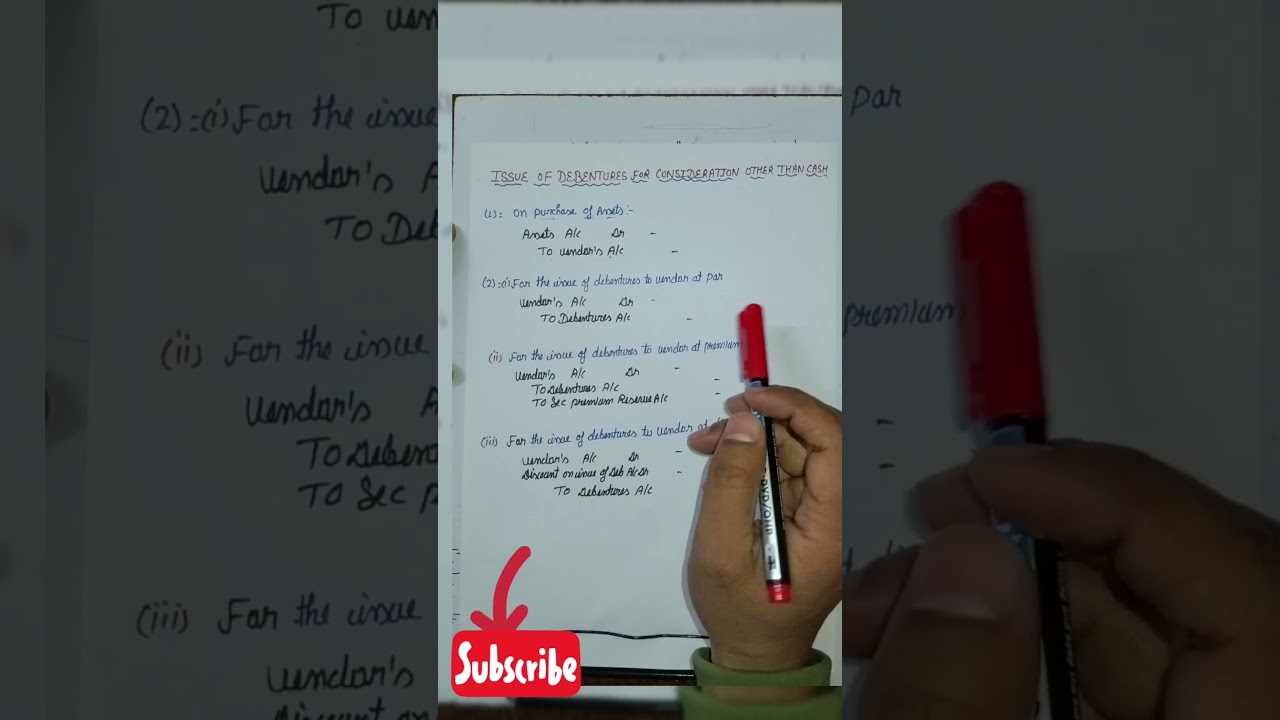 ISSUE OF DEBENTURES FOR CONSIDERATION OTHER THAN CASH
(1)= On purchase of Assets :-
Assets A/c Dr -
To vendor's A/c -
(2)=(i) For the issue of debentures to vendor at par
Vendor's A/c Dr -
To Debentures A/c -
(ii) For the issue of debentures to vendor at premium
Vendor's A/c Dr -
To Debentures A/c -
To Sec premium Reserve A/c -
(iii) For the issue of debentures to vendor at
Vendor's A/c Dr -
Discount on issue of Deb A/c Dr -
To Debentures A/c
Subscribe